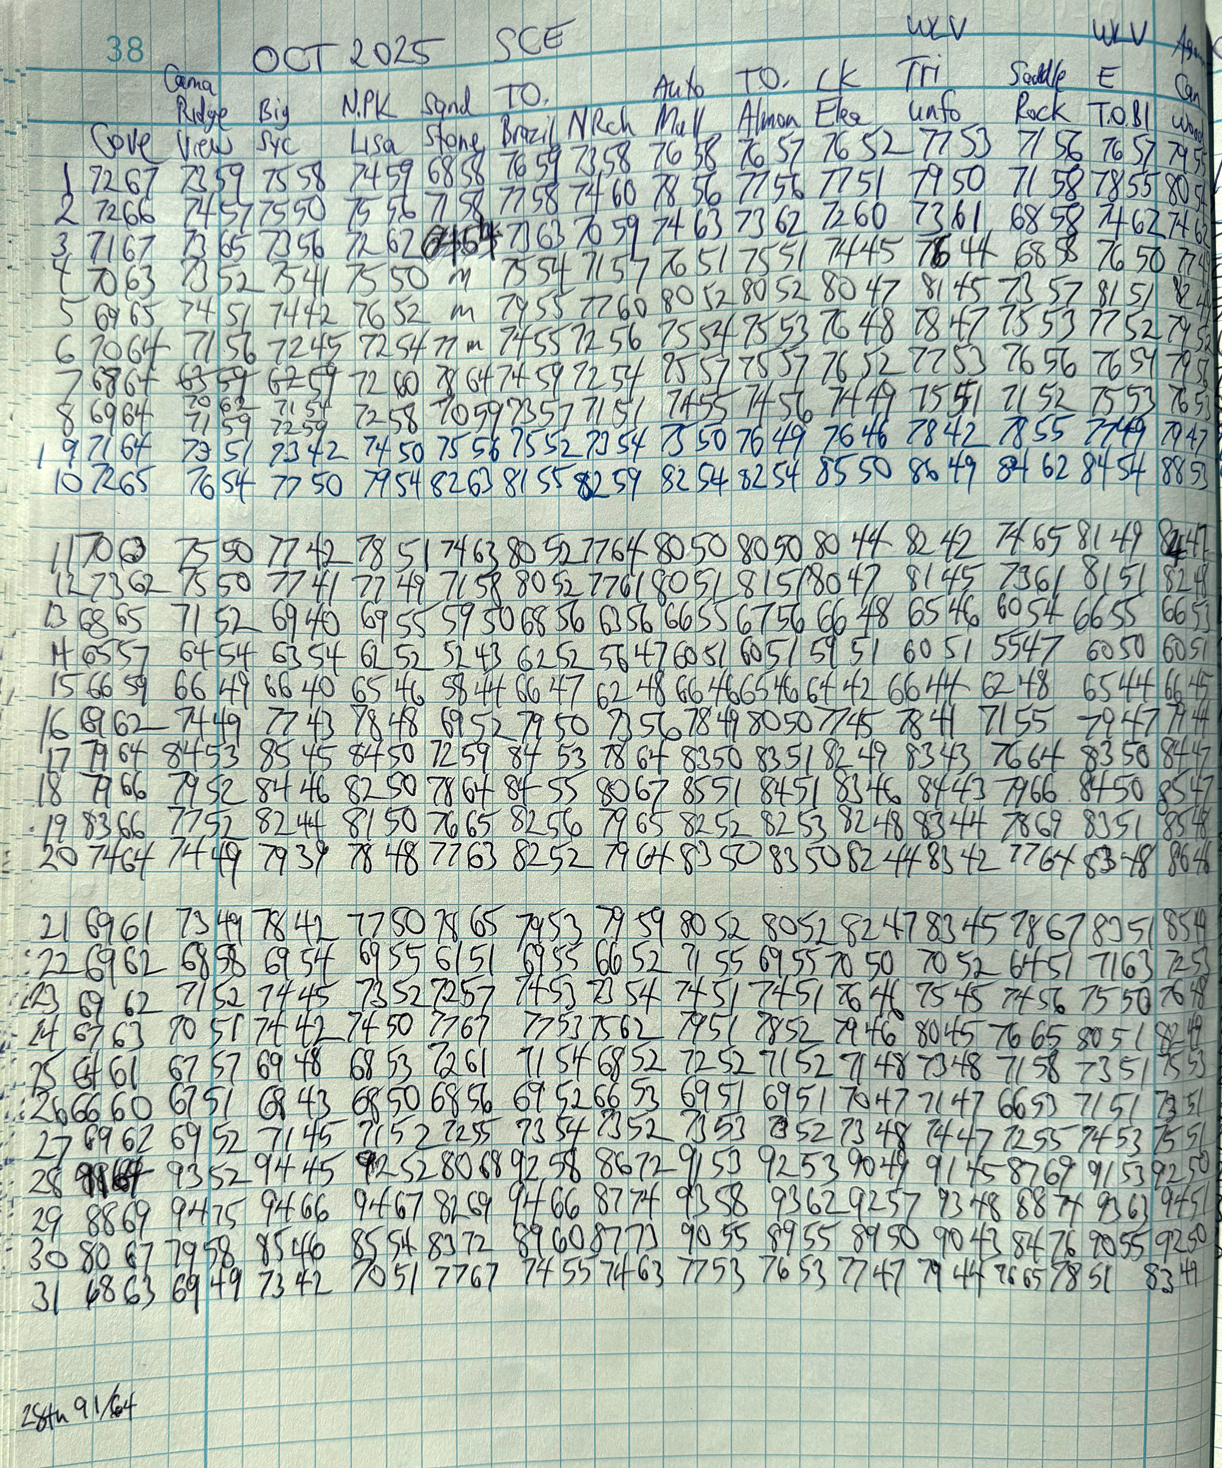 38 OCT 2025 SCE WLV WLV
Cama Auto T.O. LK Tri Saddle E
Ridge Big N.PK Sand T.O. Mall Almon Elea unfo Rock T.O.Bl Can
Cove View Syc Lisa Stone Brazil N Rch
1 72 67 73 59 75 58 74 59 68 58 76 59 73 58 76 58 76 57 76 52 77 53 71 56 76 57 79 55
2 72 66 74 57 75 50 75 56 71 58 77 58 74 60 78 56 77 56 77 51 79 50 71 58 78 55 80 54
3 71 67 73 65 73 56 72 62 64 64 73 63 70 59 74 63 73 62 72 60 73 61 68 58 74 62 74 62
4 70 63 73 52 75 41 75 50 m 75 54 71 57 76 51 75 51 74 45 76 44 68 58 76 50 77
5 69 65 74 51 74 42 76 52 m 79 55 77 60 80 52 80 52 80 47 81 45 73 57 81 51 82
6 70 64 71 56 72 45 72 54 77 m 74 55 72 56 75 54 75 53 76 48 78 47 75 53 77 52 79 52
7 68 64 63 59 62 59 72 60 78 64 74 59 72 54 75 57 75 57 76 52 77 53 76 56 76 54 79 55
70 62 71 54
8 69 64 71 59 72 59 72 58 70 59 73 57 71 51 74 55 74 56 74 49 75 51 71 52 75 53 76 53
9 71 64 73 51 73 42 74 50 75 56 75 52 73 54 75 50 76 49 76 46 78 42 78 55 77 49 79 47
10 72 65 76 54 77 50 79 54 82 63 81 55 82 59 82 54 82 54 85 50 86 49 84 62 84 54 88 53
11 70 63 75 50 77 42 78 51 74 63 80 52 77 64 80 50 80 50 80 44 82 42 74 65 81 49 84 47
12 73 62 75 50 77 41 77 49 71 58 80 52 77 61 80 51 81 51 80 47 81 45 73 61 81 51 82 48
13 68 65 71 52 69 40 69 55 59 50 68 56 63 56 66 55 67 56 66 48 65 46 60 54 66 55 66 53
14 65 57 64 54 63 54 62 52 52 43 62 52 56 47 60 51 60 51 59 51 60 51 55 47 60 50 60 51
15 66 59 66 49 66 40 65 46 58 44 66 47 62 48 66 46 65 46 64 42 66 44 62 48 65 44 66 45
16 69 62 74 49 77 43 78 48 69 52 79 50 73 56 78 49 80 50 77 45 78 41 71 55 79 47 79 44
17 79 64 84 53 85 45 84 50 72 59 84 53 78 64 83 50 83 51 82 49 83 43 76 64 83 50 84 47
18 79 66 79 52 84 46 82 50 78 64 84 55 80 67 85 51 84 51 83 46 84 43 79 66 84 50 85 47
19 83 66 77 52 82 44 81 50 76 65 82 56 79 65 82 52 82 53 82 48 83 44 78 69 83 51 85 48
20 74 64 74 49 79 39 78 48 77 63 82 52 79 64 83 50 83 50 82 44 83 42 77 64 83 48 86 46
21 69 61 73 49 78 42 77 50 78 65 79 53 79 59 80 52 80 52 82 47 83 45 78 67 83 51 85 49
22 69 62 68 58 69 54 69 55 61 51 69 55 66 52 71 55 69 55 70 50 70 52 64 51 71 63 72 53
23 69 62 71 52 74 45 73 52 72 57 74 53 73 54 74 51 74 51 76 46 75 45 74 56 75 50 76 48
24 67 63 70 51 74 42 74 50 77 67 77 53 75 62 79 51 78 52 79 46 80 45 76 65 80 51 82 49
25 64 61 67 57 69 48 68 53 72 61 71 54 68 52 72 52 71 52 71 48 73 48 71 58 73 51 75 53
26 66 60 67 51 68 43 68 50 68 56 69 52 66 53 69 51 69 51 70 47 71 47 66 53 71 51 73 51
27 69 62 69 52 71 45 71 52 72 55 73 54 73 52 73 53 73 52 73 48 74 47 72 55 74 53 75 51
28 91 64 93 52 94 45 92 52 80 68 92 58 86 72 91 53 92 53 90 49 91 45 87 69 91 53 92 50
29 88 69 94 75 94 66 94 67 82 69 94 66 87 74 93 58 93 62 92 57 93 48 88 74 93 63 94 51
30 80 67 79 58 85 46 85 54 83 72 89 60 87 73 90 55 89 55 89 50 90 43 84 76 90 55 92 50
31 68 63 69 49 73 42 70 51 77 67 74 55 74 63 77 53 76 53 77 47 79 44 76 65 78 51 83 49
28th 91/64